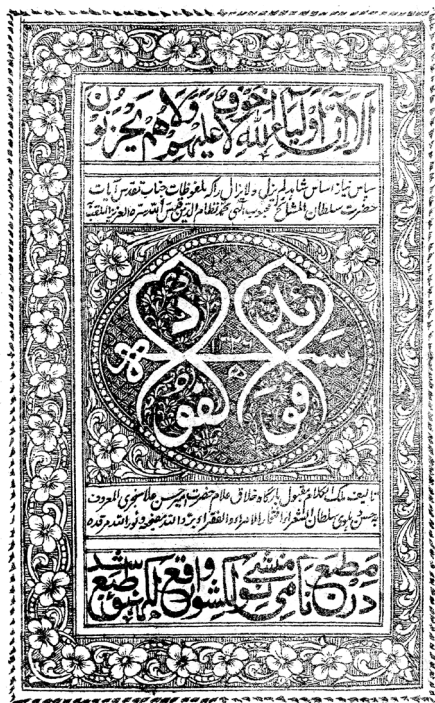 الا ان اولیاء الله لا خوف علیهم ولا هم یحزنون
سپاس نیاز اساس شاہد لم یزل ولا یزال را کہ ملفوظات جناب تقدس آیات
حضرت سلطان المشائخ محبوب الہی محمد نظام الدین قدس اللہ سرہ العزیز الملقب بہ
فوائد الفواد
تالیف ملک الکلام مقبول بارگاہ خلاق علام حضرت امیر حسن علا سنجری المعروف
بہ حسن دہلوی سلطان الشعراء افتخار الامراء والفقراء برد اللہ مضجعہ ونور اللہ مرقدہ
در مطبع نامی منشی نولکشور واقع لکھنؤ طبع شد